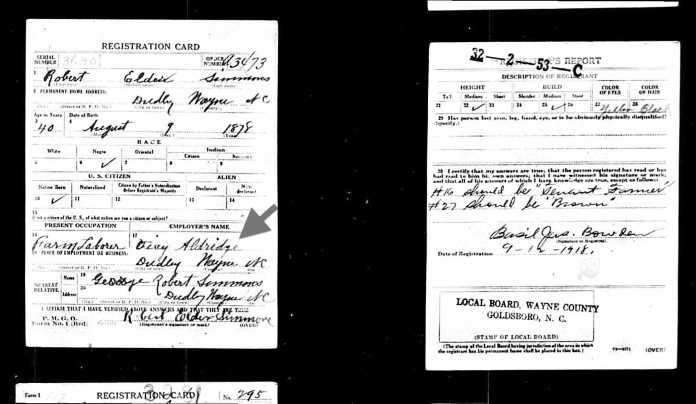 REGISTRATION CARD
SERIAL NUMBER
ORDER NUMBER A3473
Robert Elder Simmons
PERMANENT HOME ADDRESS:
Dudley Wayne NC
Age in Years Date of Birth
40 August 9 1878
RACE
White Negro Oriental Indian
Citizen
U. S. CITIZEN ALIEN
Native Born Naturalized Citizen by Father's Naturalization Before Registrant's Majority Declarant Non-declarant
10 11 12 13 14
If not a citizen of the U. S., of what nation are you a citizen or subject?
PRESENT OCCUPATION EMPLOYER'S NAME
Farm Laborer Aldridge
PLACE OF EMPLOYMENT OR BUSINESS:
Dudley Wayne NC
NEAREST RELATIVE Name George Robert Simmons
Address Dudley Wayne NC
I AFFIRM THAT I HAVE VERIFIED ABOVE ANSWERS AND THAT THEY ARE TRUE
P. M. G. O.
Form No. 1 (Red) Robert Elder Simmons
(Registrant's signature or mark) (OVER)
Form 1 REGISTRATION CARD No. 295
32-2-53-C
REPORT
DESCRIPTION OF REGISTRANT
HEIGHT BUILD COLOR OF EYES COLOR OF HAIR
Tall Medium Short Slender Medium Stout
29 Has person lost arm, leg, hand, eye, or is he obviously physically disqualified?
(Specify.)
30 I certify that my answers are true; that the person registered has read or has had read to him his own answers; that I have witnessed his signature or mark, and that all of his answers of which I have knowledge are true, except as follows:
#16 should be "Tenant Farmer"
#27 should be "Brown"
Basil Jas. Bowden
(Signature of Registrar)
Date of Registration 9-12-1918.
LOCAL BOARD, WAYNE COUNTY
GOLDSBORO, N. C.
(STAMP OF LOCAL BOARD)
(The stamp of the Local Board having jurisdiction of the area in which the registrant has his permanent home shall be placed in this box.)
(OVER)